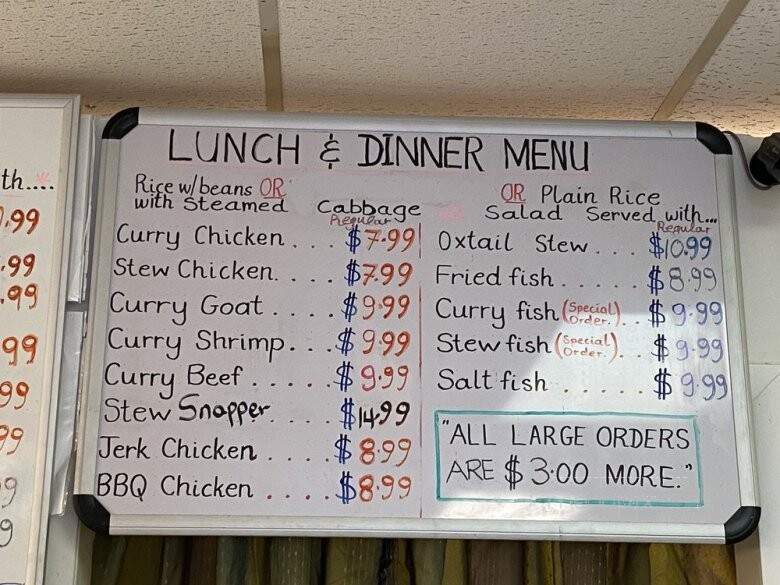 th....
.99
.99
.99
99
99
99
9
9
LUNCH & DINNER MENU
Rice w/beans OR
with Steamed Cabbage
Regular
Curry Chicken . . . . $7.99
Stew Chicken. . . . $7.99
Curry Goat . . . . $9.99
Curry Shrimp. . . $9.99
Curry Beef . . . . . $9.99
Stew Snapper. . . . $14.99
Jerk Chicken . . . . $8.99
BBQ Chicken . . . . $8.99
OR Plain Rice
Salad Served with...
Regular
Oxtail Stew . . . $10.99
Fried fish. . . . . $8.99
Curry fish (Special Order.) . . $9.99
Stew fish (Special Order.) . . $9.99
Salt fish . . . . . $9.99
"ALL LARGE ORDERS
ARE $3.00 MORE."